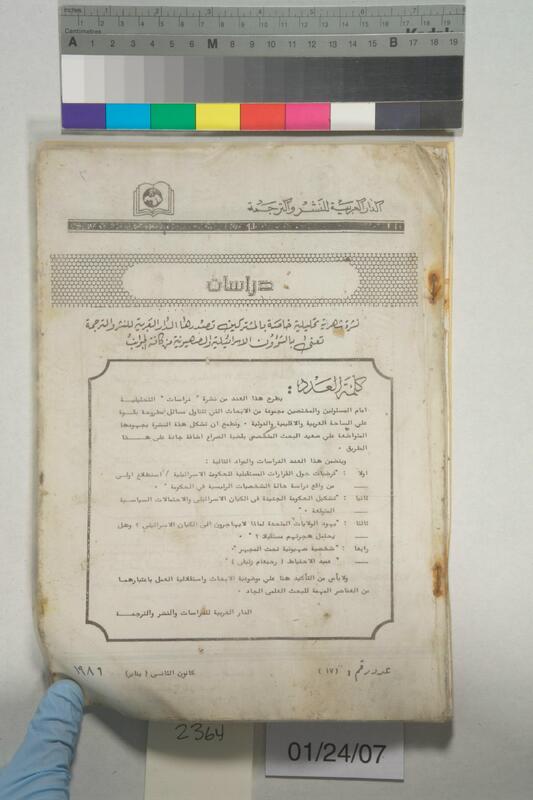 inches 1 2 3 4 5 6 7
1 2 3 4 5 6 7 8 9 10 11 12 13 14 15 16 17 18 19
Centimetres
A 1 2 3 4 5 6 M 8 9 10 11 12 13 14 15 B 17 18 19
الدار العربية للنشر والترجمة
دراسات
نشرة شهرية تحليلية خاصة بالمشتركين تصدرها الدار العربية للنشر والترجمة
تعنى بالشؤون الاسرائيلية والصهيونية من كافة الجوانب
كلمة العدد :
يطرح هذا العدد من نشرة " دراسات " التحليلية
امام المسئولين والمختصين مجموعة من الابحاث التي تتناول مسائل مطروحة بقوة
على الساحة العربية والاقليمية والدولية . ونطمح ان تشكل هذه النشرة بجهودها
المتواضعة على صعيد البحث المتخصص بقضية الصراع اضافة جادة على هذا
الطريق .
ويتضمن هذا العدد الدراسات والمواد التالية :
اولا : " فرضيات حول القرارات المستقبلية للحكومة الاسرائيلية / استطلاع اولى
من واقع دراسة حالة الشخصيات الرئيسية في الحكومة " .
ثانيا : " تشكيل الحكومة الجديدة في الكيان الاسرائيلى والاحتمالات السياسية
المتوقعة " .
ثالثا : " يهود الولايات المتحدة لماذا لايهاجرون الى الكيان الاسرائيلي ؟ وهل
يحتمل هجرتهم مستقبلا ؟ " .
رابعا : " شخصية صهيونية تحت المجهر " .
" عميد الاحتياط ( رحبعام زئيفى ) "
ولابأس من التأكيد هنا على موضوعية الابحاث واستقلالية العمل باعتبارهما
من العناصر المهمة للبحث العلمى الجاد .
الدار العربية للدراسات والنشر والترجمة
عدد رقم : (١٧) كانون الثانى ( يناير ) ١٩٨٩
2364
01/24/07